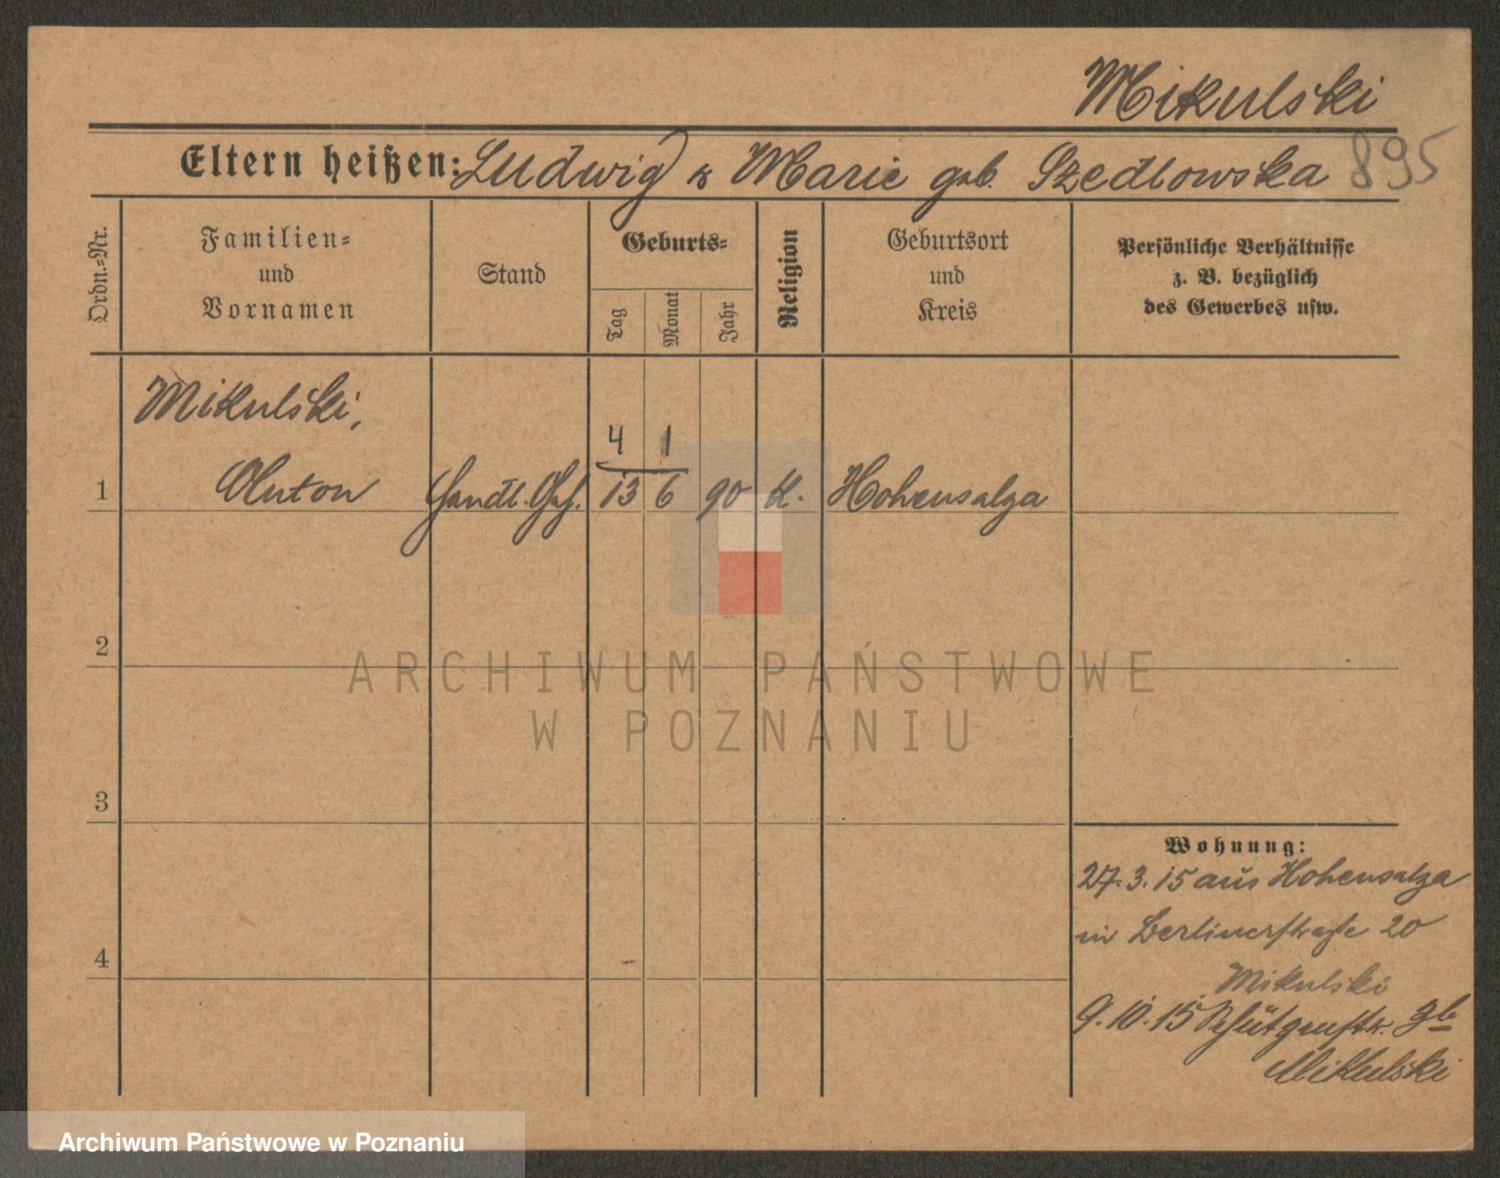 Mikulski
Eltern heißen: Ludwig & Marie geb. Szedlowska 895
Ordn.-Nr.
Familien-
und
Vornamen
Stand
Geburts-
Tag
Monat
Jahr
Religion
Geburtsort
und
Kreis
Persönliche Verhältnisse
z. B. bezüglich
des Gewerbes usw.
Mikulski,
4 1
1 Anton Handl. Geh. 13 6 90 K. Hohensalza
2
3
4
Wohnung:
27.3.15 aus Hohensalza
in Berlinerstraße 20
Mikulski
9.10.15 Schützenstr. 9b
Mikulski
ARCHIWUM PAŃSTWOWE
W POZNANIU
Archiwum Państwowe w Poznaniu